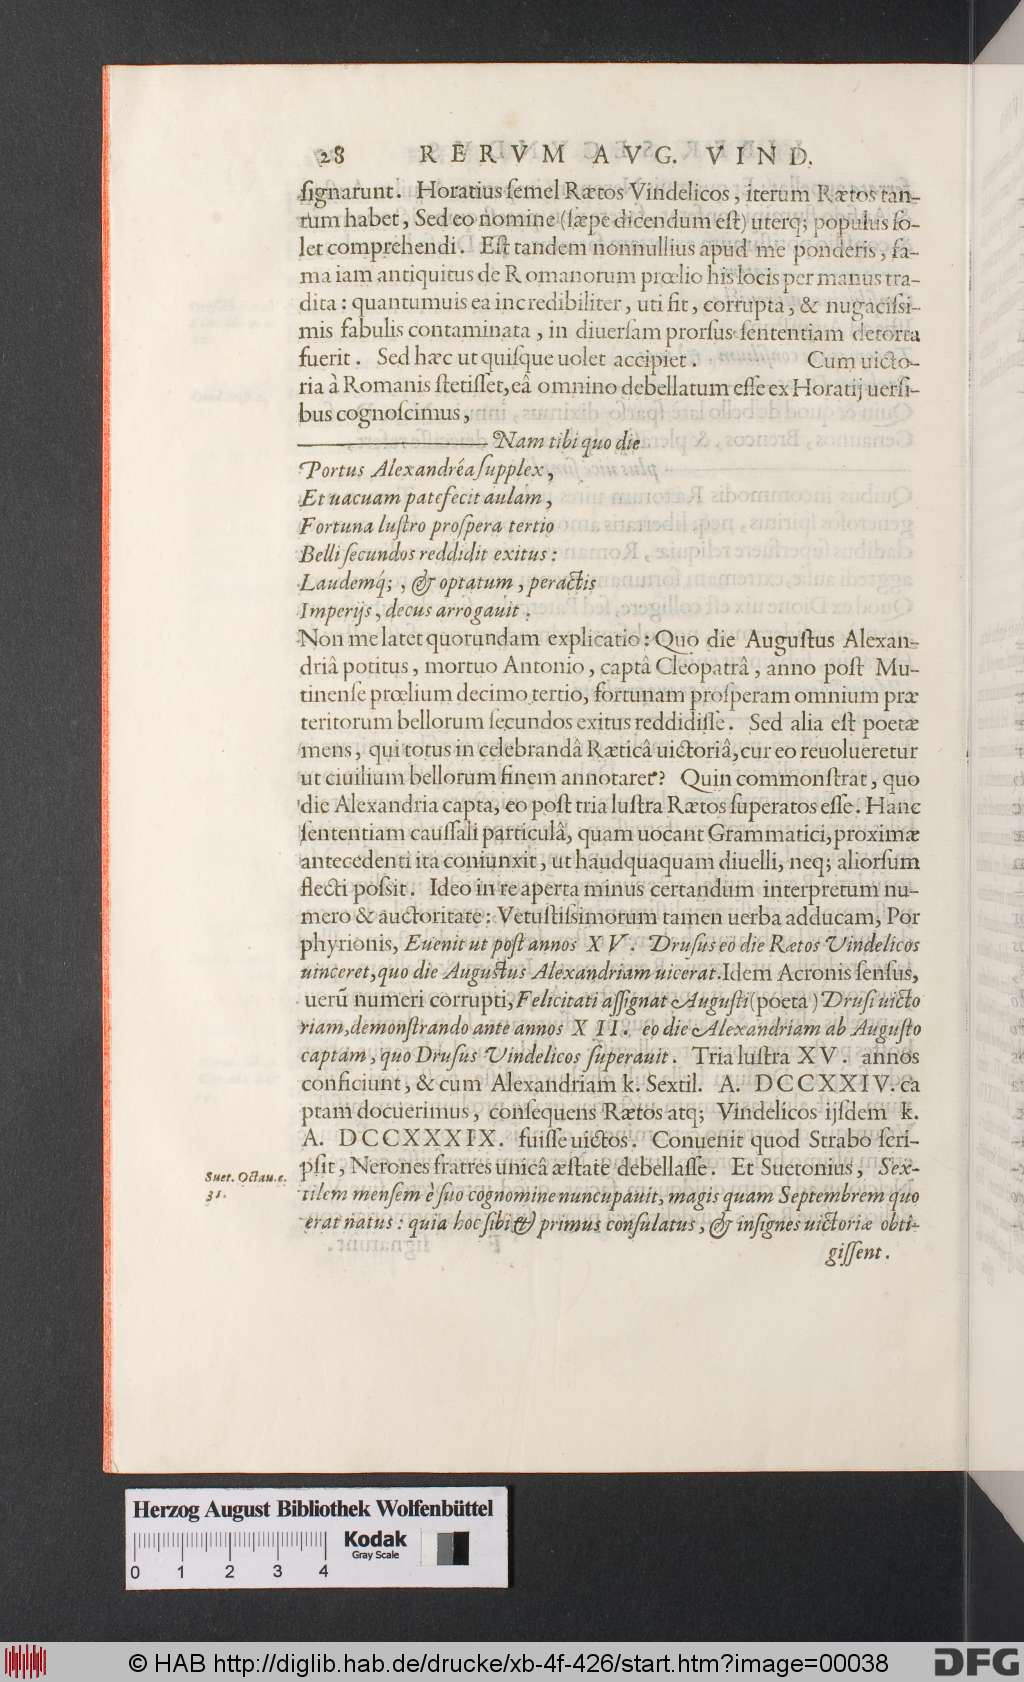 28 RERVM AVG. VIND.
ſignarunt. Horatius ſemel Rætos Vindelicos, iterum Rætos tan-
tum habet, Sed eo nomine (ſæpe dicendum eſt) uterq; populus ſo-
let comprehendi. Eſt tandem nonnullius apud me ponderis, fa-
ma iam antiquitus de Romanorum prœlio his locis per manus tra-
dita: quantumuis ea incredibiliter, uti fit, corrupta, & nugaciſsi-
mis fabulis contaminata, in diuerſam prorſus ſententiam detorta
fuerit. Sed hæc ut quiſque uolet accipiet. Cum uicto-
ria à Romanis ſtetiſſet, eâ omnino debellatum eſſe ex Horatij uerſi-
bus cognoſcimus,
Nam tibi quo die
Portus Alexandréa ſupplex,
Et uacuam patefecit aulam,
Fortuna luſtro proſpera tertio
Belli ſecundos reddidit exitus:
Laudemq́;, & optatum, peractis
Imperijs, decus arrogauit.
Non me latet quorundam explicatio: Quo die Auguſtus Alexan-
driâ potitus, mortuo Antonio, captâ Cleopatrâ, anno poſt Mu-
tinenſe prœlium decimo tertio, fortunam proſperam omnium præ
teritorum bellorum ſecundos exitus reddidiſſe. Sed alia eſt poetæ
mens, qui totus in celebrandâ Ræticâ uictoriâ, cur eo reuolueretur
ut ciuilium bellorum finem annotaret? Quin commonſtrat, quo
die Alexandria capta, eo poſt tria luſtra Rætos ſuperatos eſſe. Hanc
ſententiam cauſſali particulâ, quam uocant Grammatici, proximæ
antecedenti ita coniunxit, ut haudquaquam diuelli, neq; aliorſum
flecti poſsit. Ideo in re aperta minus certandum interpretum nu-
mero & auctoritate: Vetuſtiſsimorum tamen uerba adducam, Por
phyrionis, Euenit ut poſt annos XV. Druſus eo die Rætos Vindelicos
uinceret, quo die Auguſtus Alexandriam uicerat. Idem Acronis ſenſus,
uerũ numeri corrupti, Felicitati aſſignat Auguſti (poeta) Druſi uicto
riam, demonſtrando ante annos XII. eo die Alexandriam ab Auguſto
captam, quo Druſus Vindelicos ſuperauit. Tria luſtra XV. annos
conficiunt, & cum Alexandriam k. Sextil. A. DCCXXIV. ca
ptam docuerimus, conſequens Rætos atq; Vindelicos ijſdem k.
A. DCCXXXIX. fuiſſe uictos. Conuenit quod Strabo ſcri-
pſit, Nerones fratres unicâ æſtate debellaſſe. Et Suetonius, Sex-
Suet. Octau. c.
31.
tilem menſem è ſuo cognomine nuncupauit, magis quam Septembrem quo
erat natus: quia hoc ſibi & primus conſulatus, & inſignes uictoriæ obti-
giſſent.
Herzog August Bibliothek Wolfenbüttel
Kodak
Gray Scale
0 1 2 3 4
© HAB http://diglib.hab.de/drucke/xb-4f-426/start.htm?image=00038
DFG